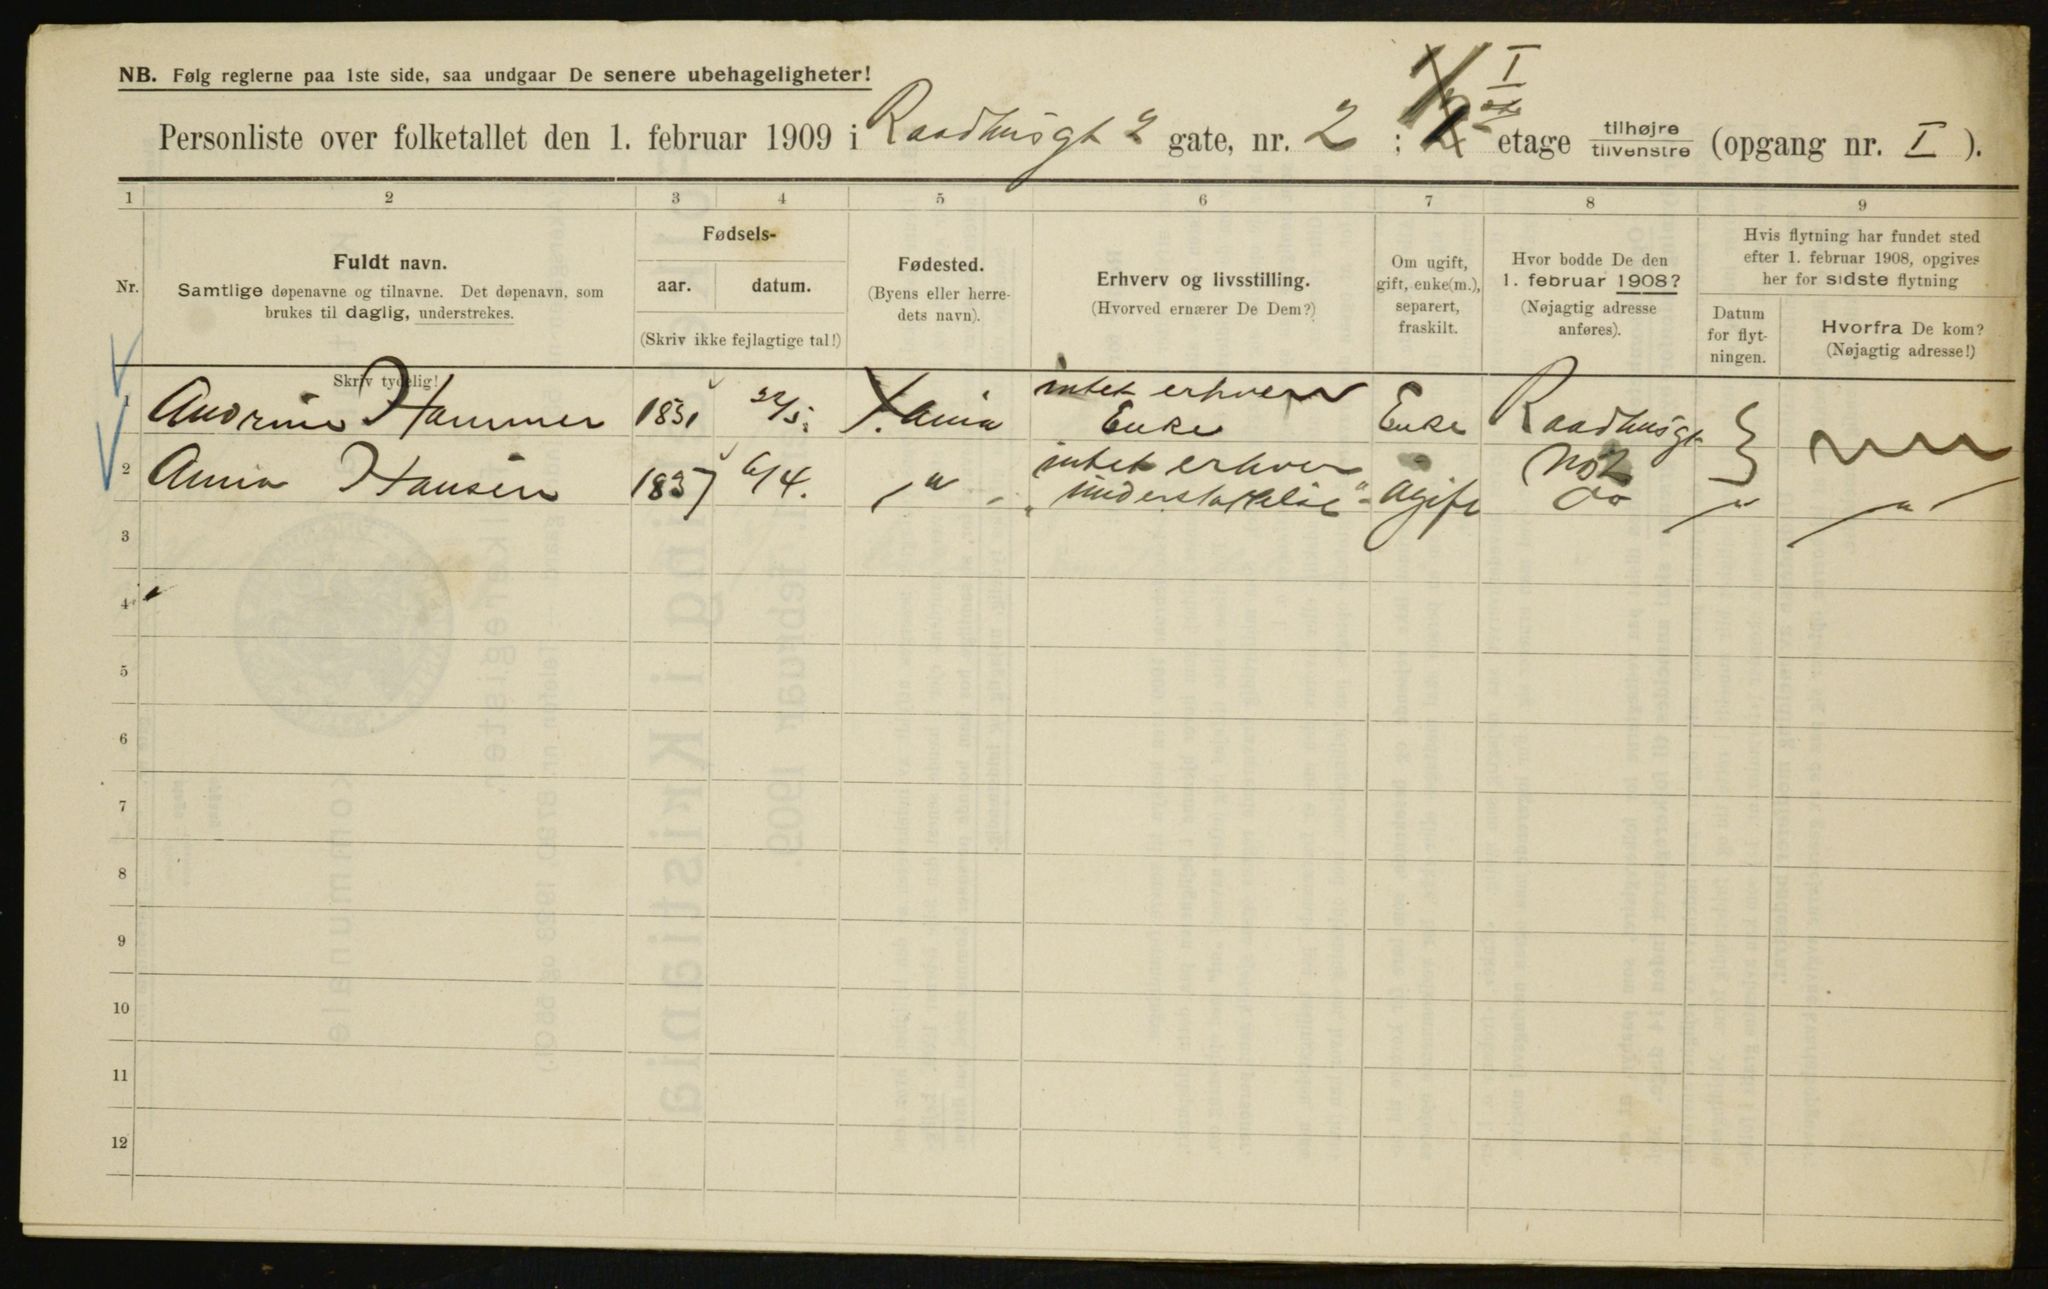 NB. Følg reglerne paa 1ste side, saa undgaar De senere ubehageligheter!
Personliste over folketallet den 1. februar 1909 i Raadhusgt 2 gate, nr. 2 ; I etage tilhøjre tilvenstre (opgang nr. I ).
1 2 3 4 5 6 7 8 9
Nr.
Fuldt navn.
Samtlige døpenavne og tilnavne. Det døpenavn, som
brukes til daglig, understrekes.
Skriv tydelig!
Fødsels-
aar. datum.
(Skriv ikke fejlagtige tal!)
Fødested.
(Byens eller herre-
dets navn).
Erhverv og livsstilling.
(Hvorved ernærer De Dem?)
Om ugift,
gift, enke(m.),
separert,
fraskilt.
Hvor bodde De den
1. februar 1908?
(Nøjagtig adresse
anføres).
Hvis flytning har fundet sted
efter 1. februar 1908, opgives
her for sidste flytning
Datum
for flyt-
ningen.
Hvorfra De kom?
(Nøjagtig adresse!)
intet erhverv
1 Andrine Hammer 1831 /5. Xania Enke Enke Raadhusgt
No 2
intet erhver
2 Anna Hansen 1837 6/4. " understøttelse ugift do " "
3
4
5
6
7
8
9
10
11
12